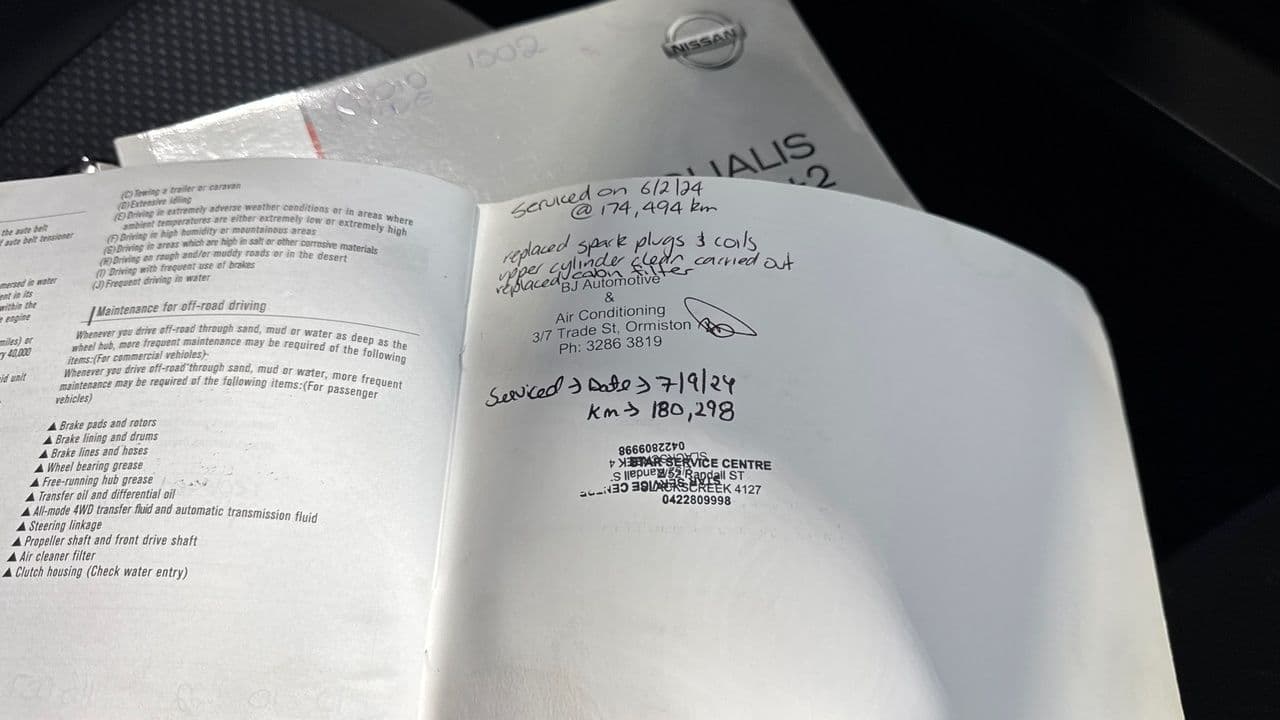 1502
NISSAN
UALIS
+2
the auto belt
f auto belt tensioner
mersed in water
ent in its
within the
e engine
miles) or
ry 40,000
id unit
(C) Towing a trailer or caravan
(D) Extensive idling
(E) Driving in extremely adverse weather conditions or in areas where
ambient temperatures are either extremely low or extremely high
(F) Driving in high humidity or mountainous areas
(G) Driving in areas which are high in salt or other corrosive materials
(H) Driving on rough and/or muddy roads or in the desert
(I) Driving with frequent use of brakes
(J) Frequent driving in water
Maintenance for off-road driving
Whenever you drive off-road through sand, mud or water as deep as the
wheel hub, more frequent maintenance may be required of the following
items:(For commercial vehicles)
Whenever you drive off-road through sand, mud or water, more frequent
maintenance may be required of the following items:(For passenger
vehicles)
▲ Brake pads and rotors
▲ Brake lining and drums
▲ Brake lines and hoses
▲ Wheel bearing grease
▲ Free-running hub grease
▲ Transfer oil and differential oil
▲ All-mode 4WD transfer fluid and automatic transmission fluid
▲ Steering linkage
▲ Propeller shaft and front drive shaft
▲ Air cleaner filter
▲ Clutch housing (Check water entry)
Serviced on 6/2/24
@ 174,494 km
replaced spark plugs & coils
upper cylinder clean carried out
replaced cabin filter
BJ Automotive
&
Air Conditioning
3/7 Trade St, Ormiston
Ph: 3286 3819
Serviced → Date → 7/9/24
Km → 180,298
0422809998
STAR SERVICE CENTRE
2/52 Randall ST
SLACKSCREEK 4127
0422809998